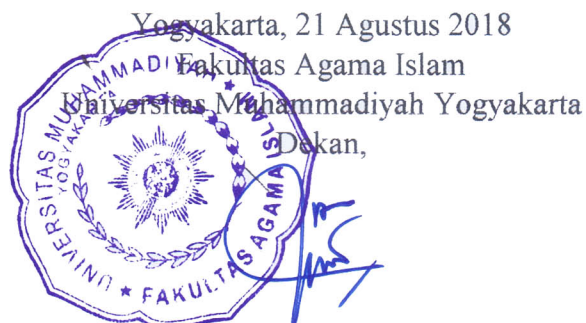 Yogyakarta, 21 Agustus 2018
Fakultas Agama Islam
Universitas Muhammadiyah Yogyakarta
Dekan,
UNIVERSITAS MUHAMMADIYAH
YOGYAKARTA
★ FAKULTAS AGAMA ISLAM ★